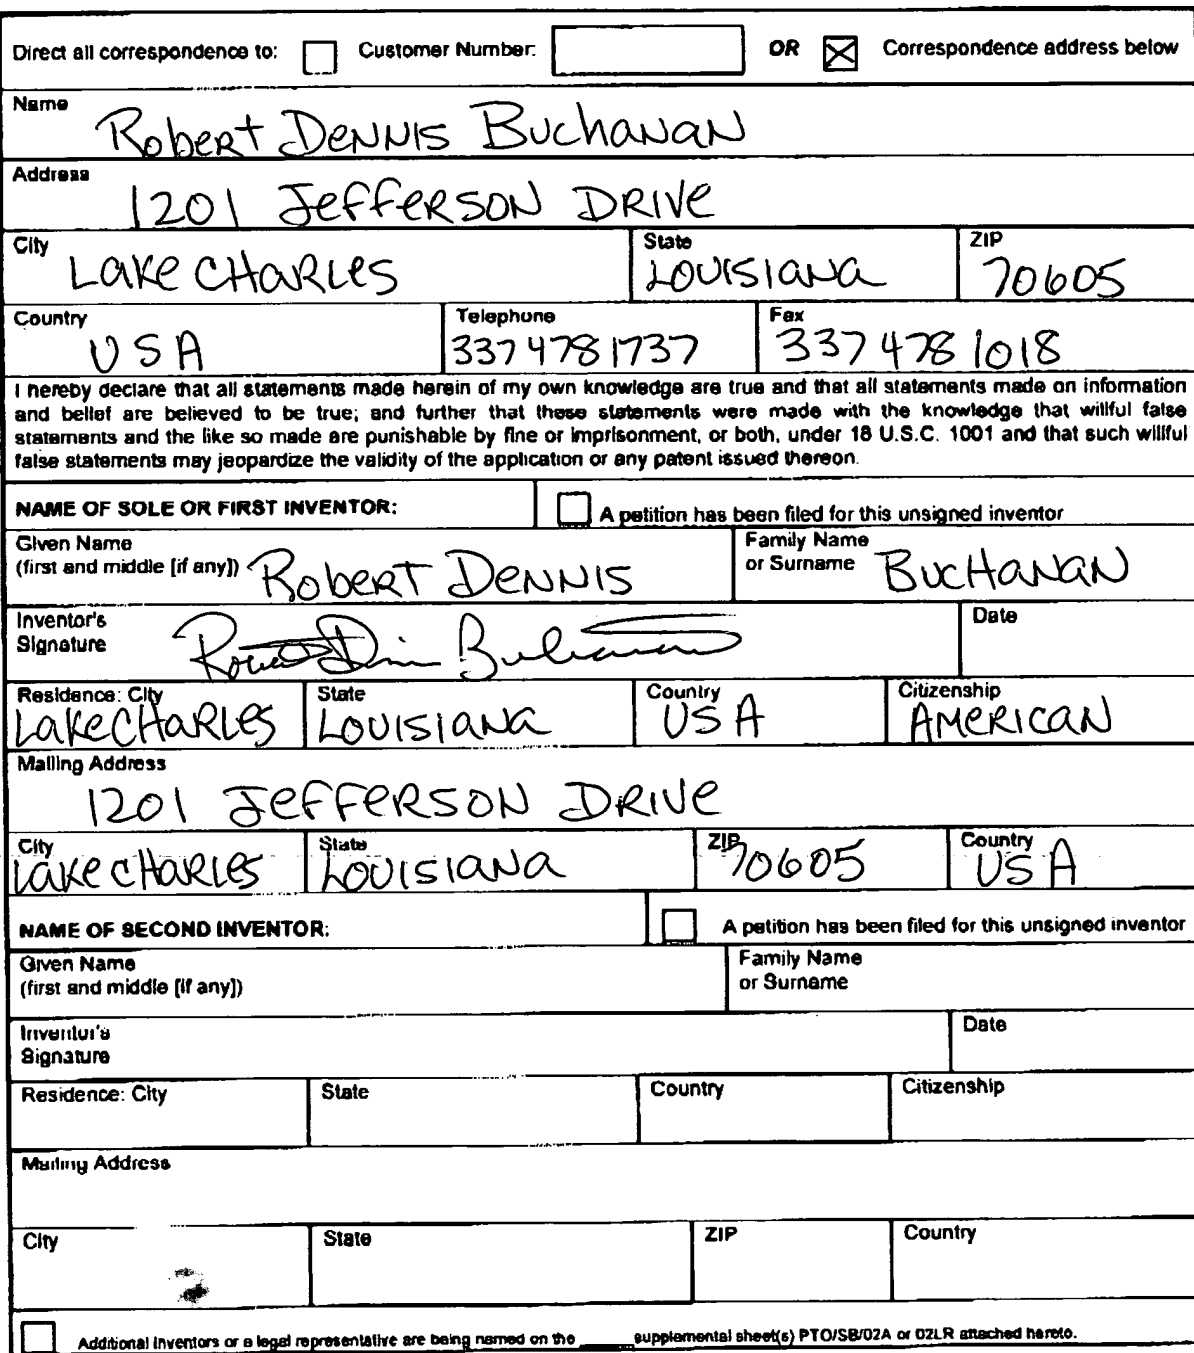 Direct all correspondence to: Customer Number: OR Correspondence address below
Name
Robert Dennis Buchanan
Address
1201 Jefferson Drive
City State ZIP
Lake Charles Louisiana 70605
Country Telephone Fax
USA 3374781737 3374781018
I hereby declare that all statements made herein of my own knowledge are true and that all statements made on information
and belief are believed to be true; and further that these statements were made with the knowledge that willful false
statements and the like so made are punishable by fine or imprisonment, or both, under 18 U.S.C. 1001 and that such willful
false statements may jeopardize the validity of the application or any patent issued thereon.
NAME OF SOLE OR FIRST INVENTOR: A petition has been filed for this unsigned inventor
Given Name Family Name
(first and middle [if any]) Robert Dennis or Surname Buchanan
Inventor's Date
Signature Robert Dennis Buchanan
Residence: City State Country Citizenship
Lake Charles Louisiana USA American
Mailing Address
1201 Jefferson Drive
City State ZIP Country
Lake Charles Louisiana 70605 USA
NAME OF SECOND INVENTOR: A petition has been filed for this unsigned inventor
Given Name Family Name
(first and middle [if any]) or Surname
Inventor's Date
Signature
Residence: City State Country Citizenship
Mailing Address
City State ZIP Country
Additional inventors or a legal representative are being named on the ____ supplemental sheet(s) PTO/SB/02A or 02LR attached hereto.